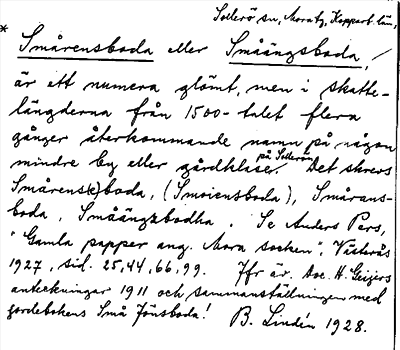 Sollerö sn, Mora tg, Kopparb. län.
* Smårensboda eller Småängsboda,
är ett numera glömt, men i skatte-
längderna från 1500-talet flera
gånger återkommande namn på någon
mindre by eller gårdklase på Sollerön. Det skrevs
Smårens(e)boda, (Smoiensboda), Smårans-
boda, Småängzbodha. Se Anders Pers,
"Gamla papper ang. Mora socken", Västerås
1927, sid. 25, 44, 66, 99. Jfr äv. doc. H. Geijers
anteckningar 1911 och sammanställningen med
jordebokens Små Jönsboda! B. Lindén 1928.